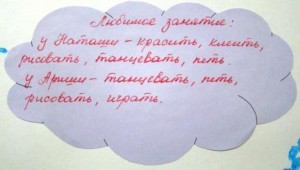 Любимое занятие:
у Наташи - красить, клеить,
рисовать, танцевать, петь.
у Ариши - танцевать, петь,
рисовать, играть.